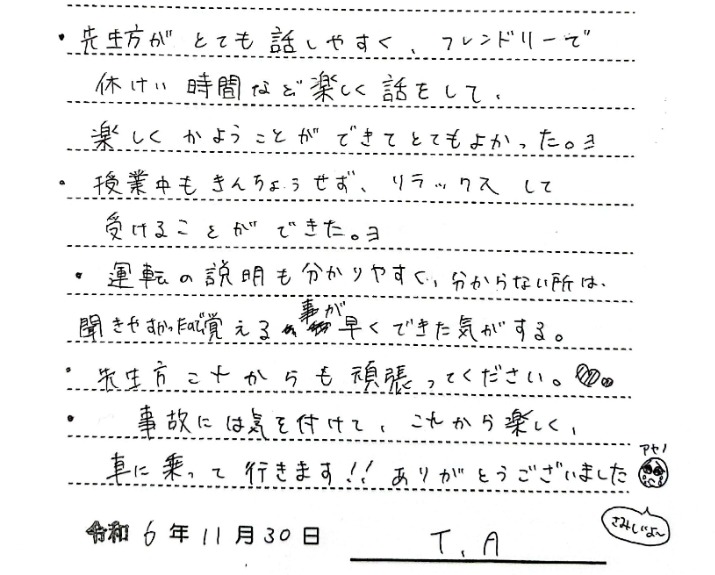 ・先生方が とても 話しやすく、フレンドリーで
休けい 時間など 楽しく 話をして、
楽しく かようことが できてとてもよかった。ヨ
・授業中も きんちょうせず、リラックス して
受けることが できた。ヨ
・運転の説明も分かりやすく、分からない所は、
聞きやすかったので覚える事が早くできた気がする。
・先生方これからも 頑張ってください。
・事故には気を付けて、これから楽しく、
車に乗って行きます!! ありがとうございました
アヤノ
さみしいよ〜
令和 6年 11月 30日 T.A